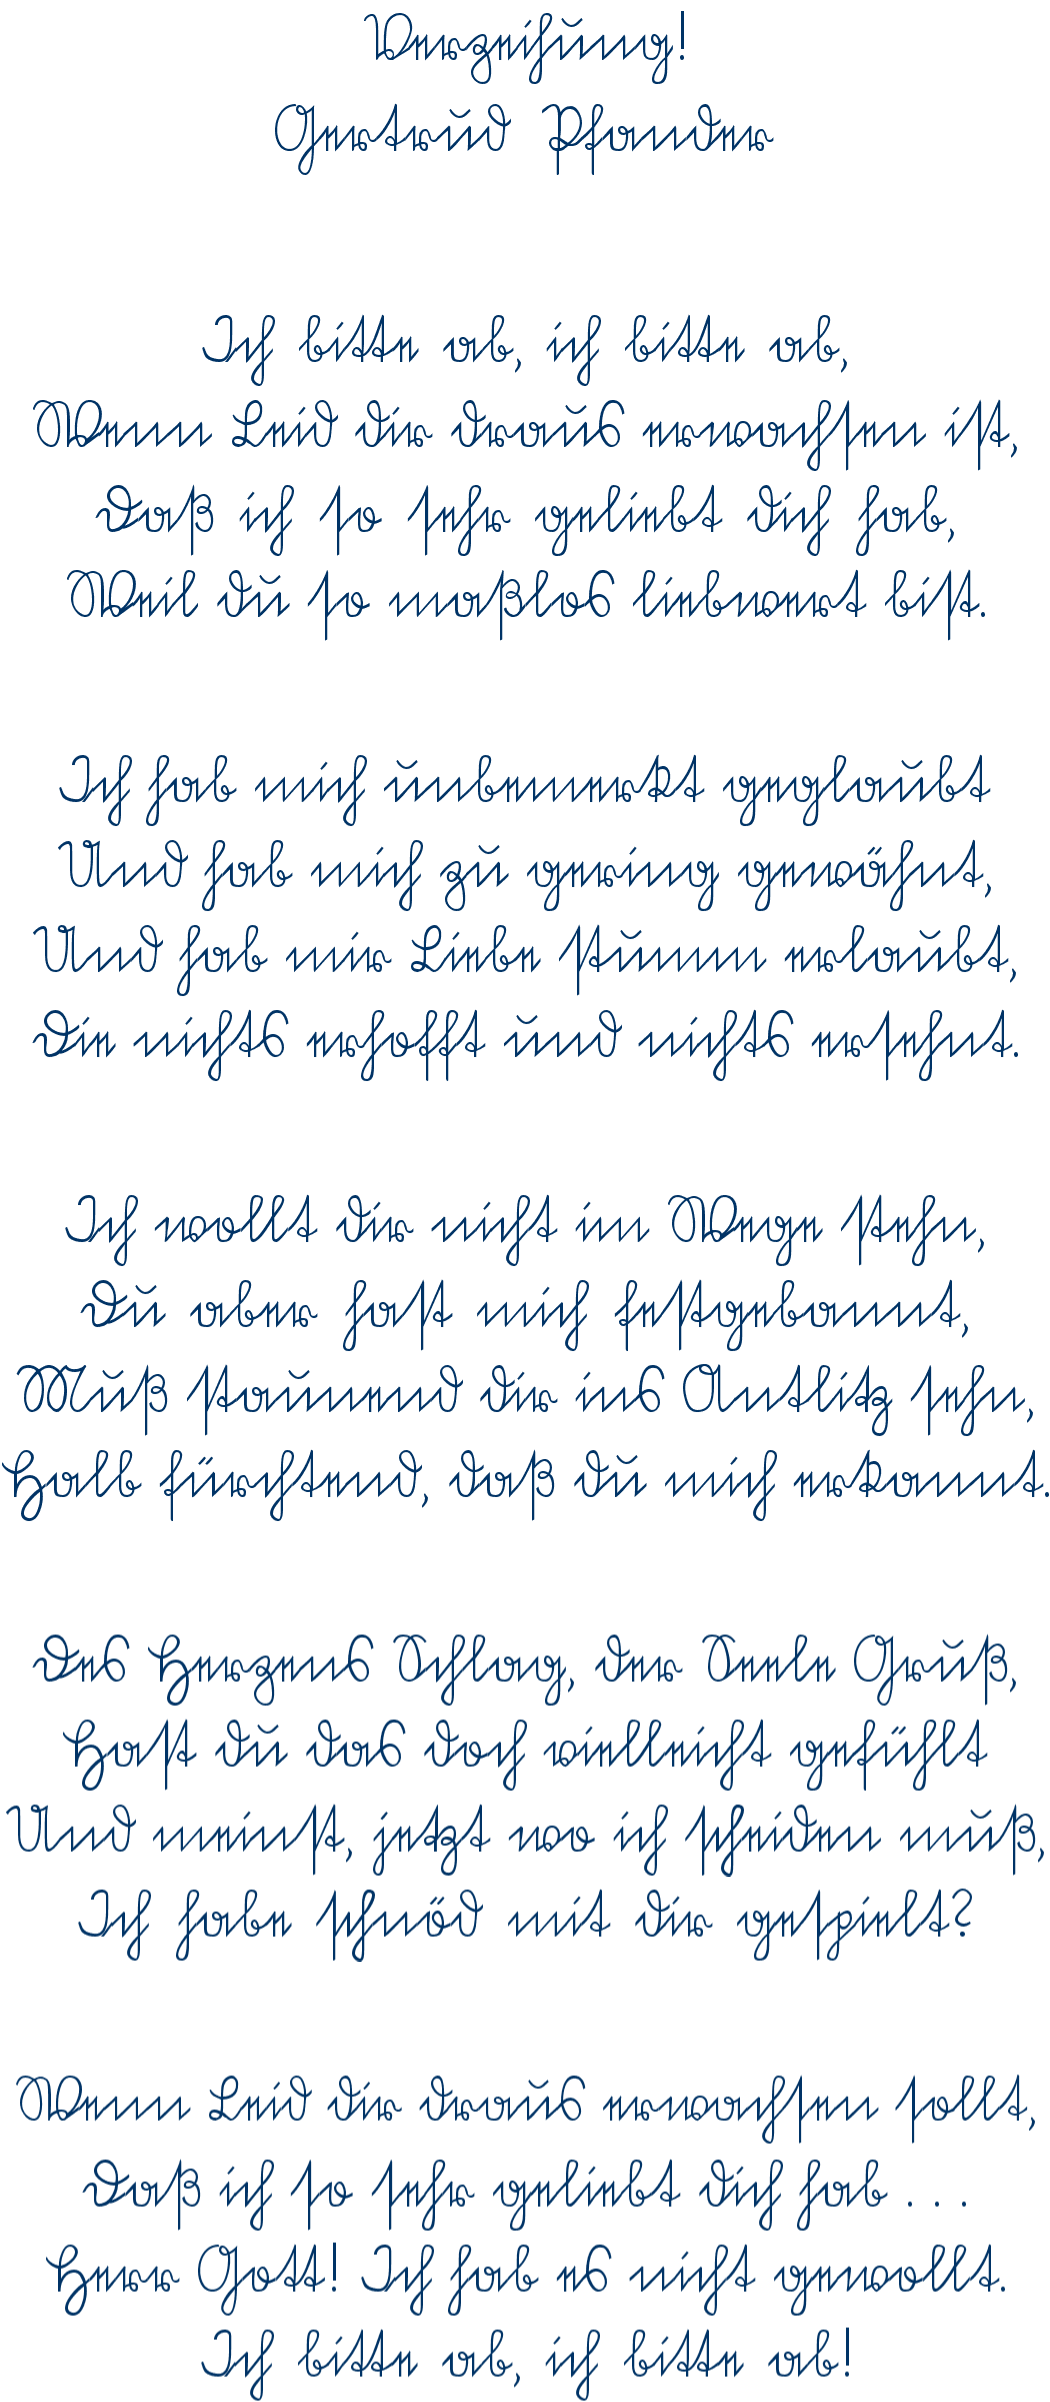 Verzeihung!
Gertrud Pfander
Ich bitte ab, ich bitte ab,
Wenn Leid dir draus erwachsen ist,
Daß ich so sehr geliebt dich hab,
Weil du so maßlos liebwert bist.
Ich hab mich unbemerkt geglaubt
Und hab mich zu gering gewähnt,
Und hab mir Liebe stumm erlaubt,
Die nichts erhofft und nichts ersehnt.
Ich wollt dir nicht im Wege stehn,
Du aber hast mich festgebannt,
Muß staunend dir ins Antlitz sehn,
Halb fürchtend, daß du mich erkannt.
Des Herzens Schlag, der Seele Gruß,
Hast du das doch vielleicht gefühlt
Und meinst, jetzt wo ich scheiden muß,
Ich habe schnöd mit dir gespielt?
Wenn Leid dir draus erwachsen sollt,
Daß ich so sehr geliebt dich hab . . .
Herr Gott! Ich hab es nicht gewollt.
Ich bitte ab, ich bitte ab!